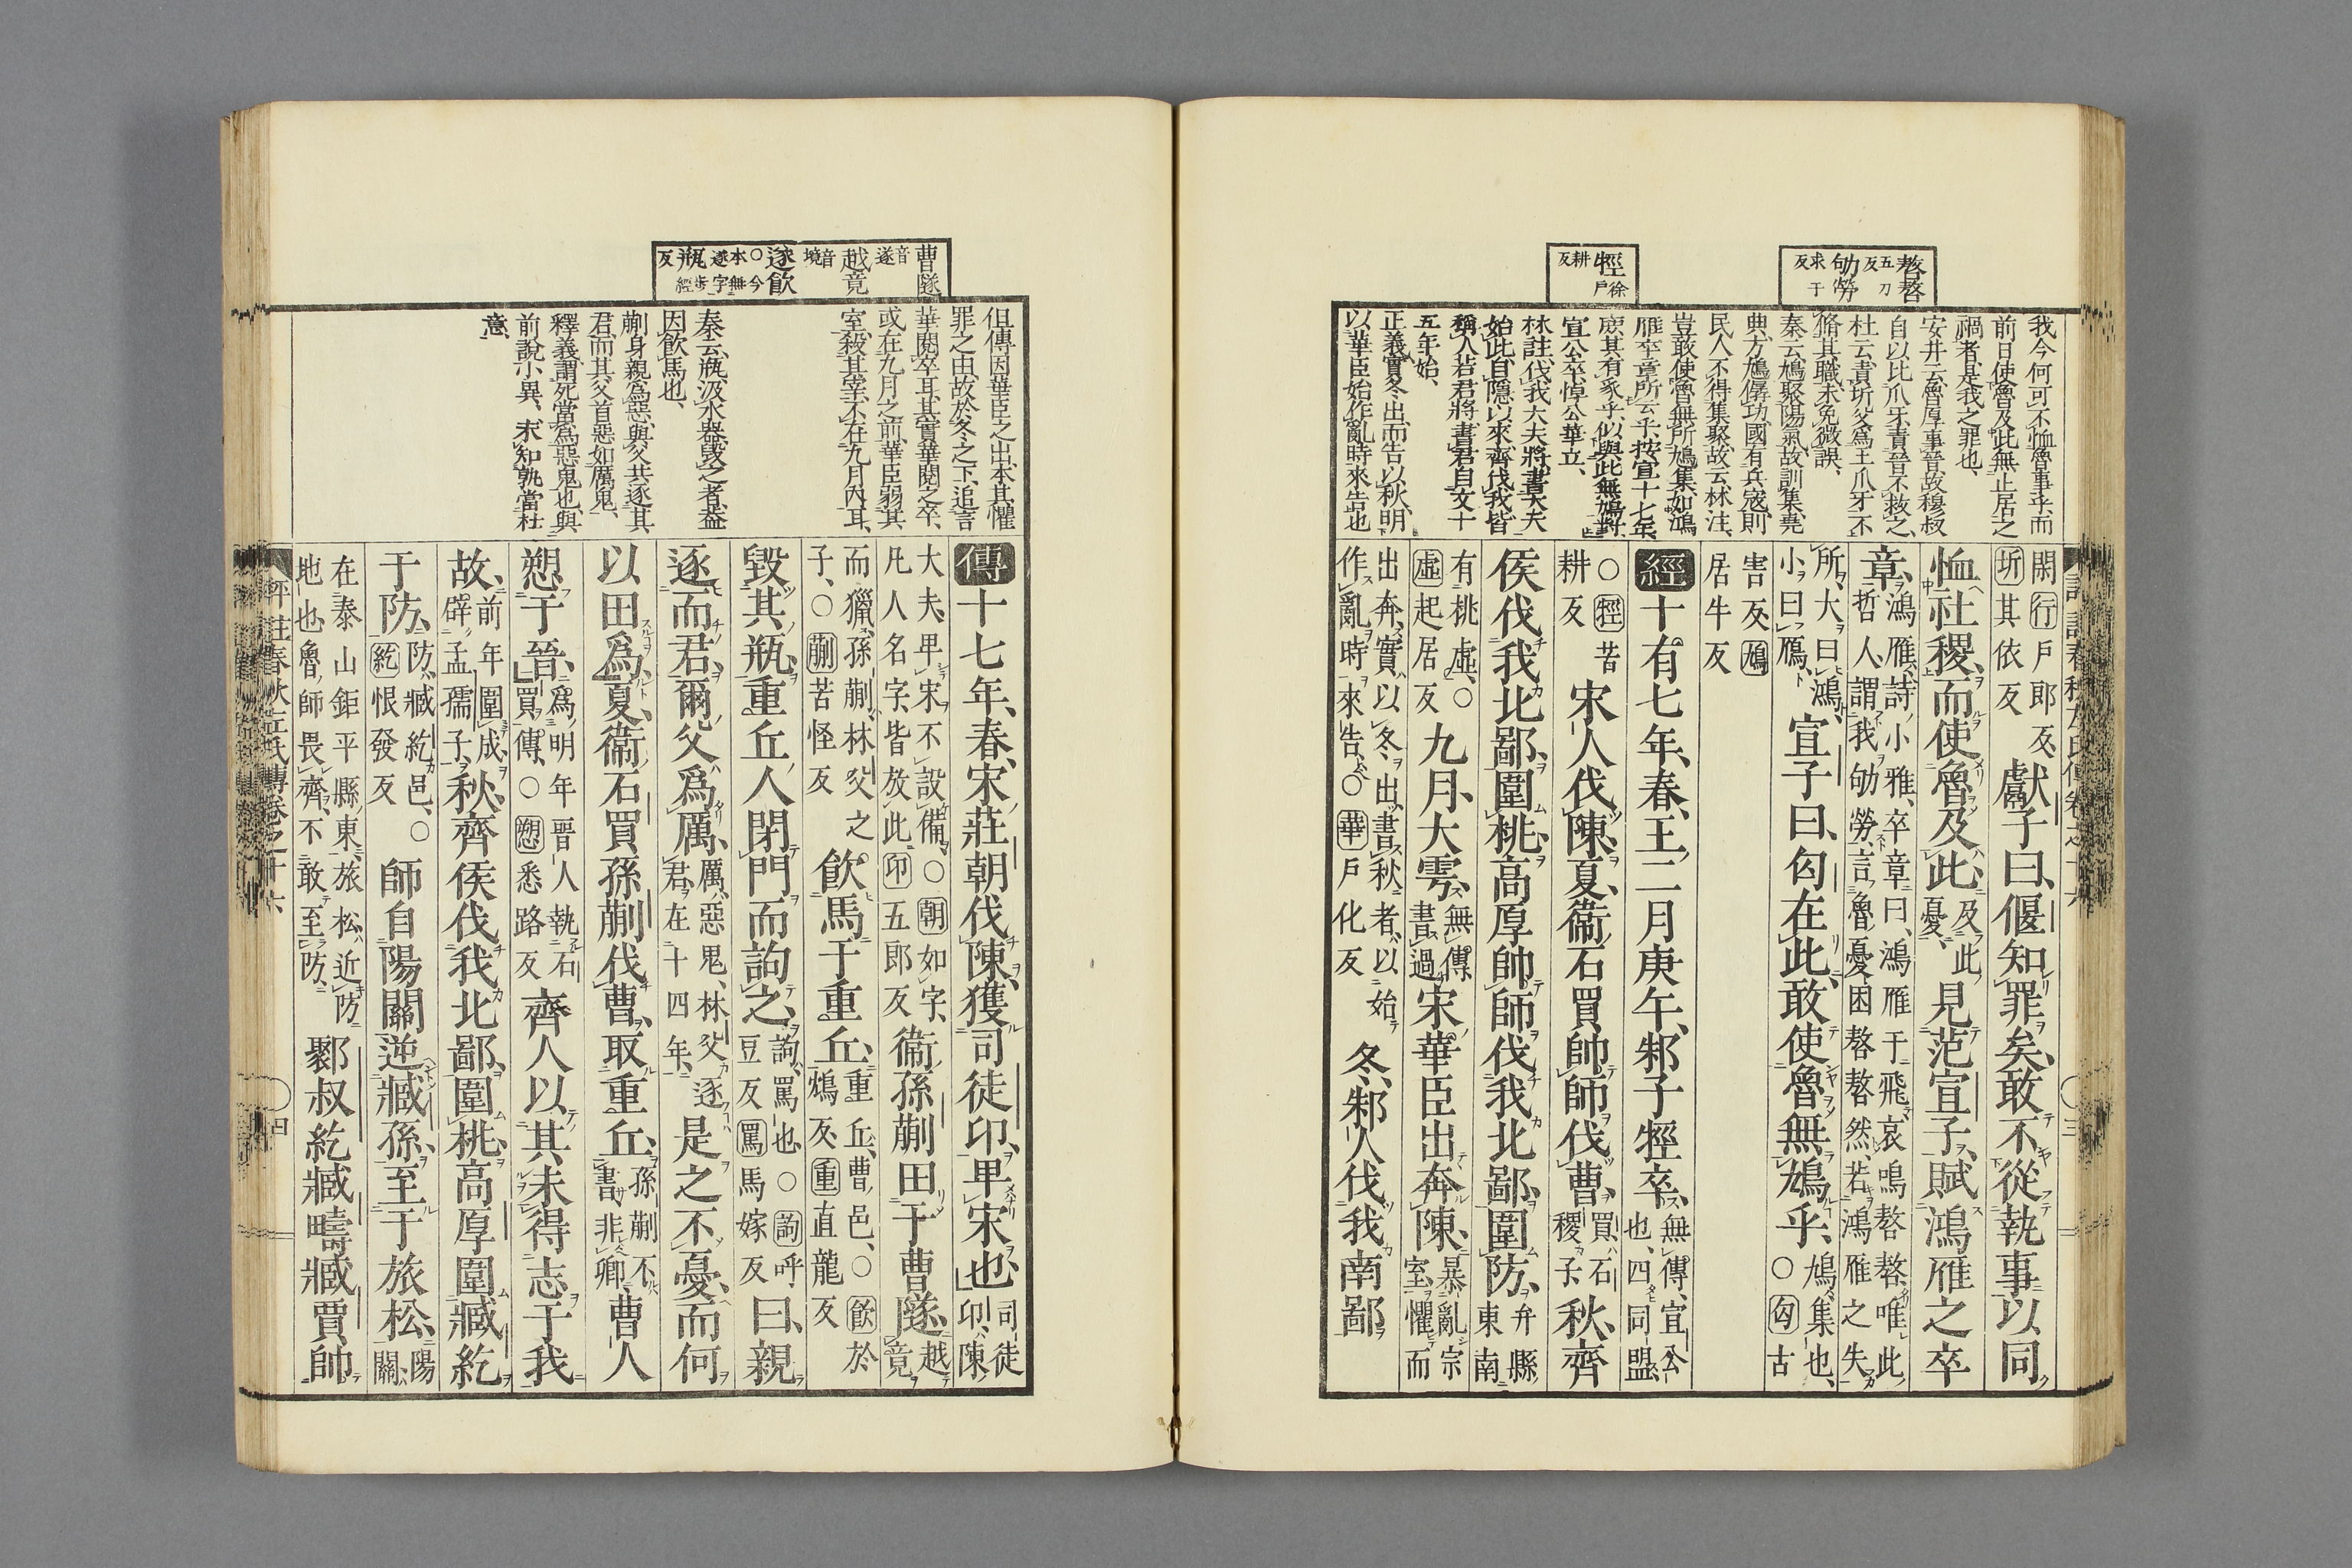 嗸嗸五刀反
劬勞求于反
牼徐戸耕反
我今何可不恤魯事乎而
前日使魯及此無止居之
禍者是我之罪也
安井云魯厚事晉故穆叔
自以比爪牙責晉不救之
杜云責圻父爲王爪牙不
脩其職未免微誤
秦云鳩聚陽氣故訓集堯
典方鳩僝功國有兵寇則
民人不得集聚故云林注
豈敢使魯無所鳩集如鴻
雁卒章所云乎按宣十七年
庶其有豸乎似與此無鳩對
宣公卒悼公華立
林註伐我大夫將書大夫
始此自隱以來齊伐我皆
稱人若君將書君自文十
五年始
正義實冬出而告以秋明
以華臣始作亂時來告也
閑行戸郎反
圻其依反
獻子曰偃知罪矣敢不從執事以同
恤社稷而使魯及此
及此憂
見范宣子賦鴻雁之卒
章
鴻雁詩小雅卒章曰鴻雁于飛哀鳴嗸嗸唯此
哲人謂我劬勞言魯憂困嗸嗸然若鴻雁之失
所大曰鴻
小曰鴈
宣子曰匄在此敢使魯無鳩乎
鳩集也
○匄古
害反鳩
居牛反
經十有七年春王二月庚午邾子牼卒
無傳宣公
也四同盟
○牼苦
耕反
宋人伐陳夏衞石買帥師伐曹
買石
稷子
秋齊
侯伐我北鄙圍桃高厚帥師伐我北鄙圍防
弁縣
東南
有桃虛○
虛起居反
九月大雩
無傳
書過
宋華臣出奔陳
暴亂宗
室懼而
出奔實以冬出書秋者以始
作亂時來告○華戸化反
冬邾人伐我南鄙
曹隧音遂
越竟音境
遂飮○今本無遂字
瓶步經反
但傳因華臣之出本其懼
罪之由故於冬之下追言
華閱卒耳其實華閱之卒
或在九月之前華臣弱其
室殺其宰不在九月內耳
秦云瓶汲水器毀之者蓋
因飮馬也
蒯身親爲惡與父共逐其
君而其父首惡如厲鬼
釋義謂死當爲惡鬼也與
前說小異未知孰當杜
意
傳十七年春宋莊朝伐陳獲司徒卬卑宋也
司徒
卬陳
大夫卑宋不設備○朝如字
凡人名字皆放此卬五郎反
衞孫蒯田于曹隧
越竟
而獵孫蒯林父之
子○蒯苦怪反
飮馬于重丘
重丘曹邑○飮於
鴆反重直龍反
毀其瓶重丘人閉門而訽之
訽罵也○訽呼
豆反罵馬嫁反
曰親
逐而君爾父爲厲
厲惡鬼林父逐
君在十四年
是之不憂而何
以田爲夏衞石買孫蒯伐曹取重丘
孫蒯不
書非卿
曹人
愬于晉
爲明年晉人執石
買傳○愬悉路反
齊人以其未得志于我
故
前年圍成
辟孟孺子
秋齊侯伐我北鄙圍桃高厚圍臧紇
于防
防臧紇邑○
紇恨發反
師自陽關逆臧孫至于旅松
陽
關
在泰山鉅平縣東旅松近防
地也魯師畏齊不敢至防
郰叔紇臧疇臧賈帥
評註春秋左氏傳卷之十六
四